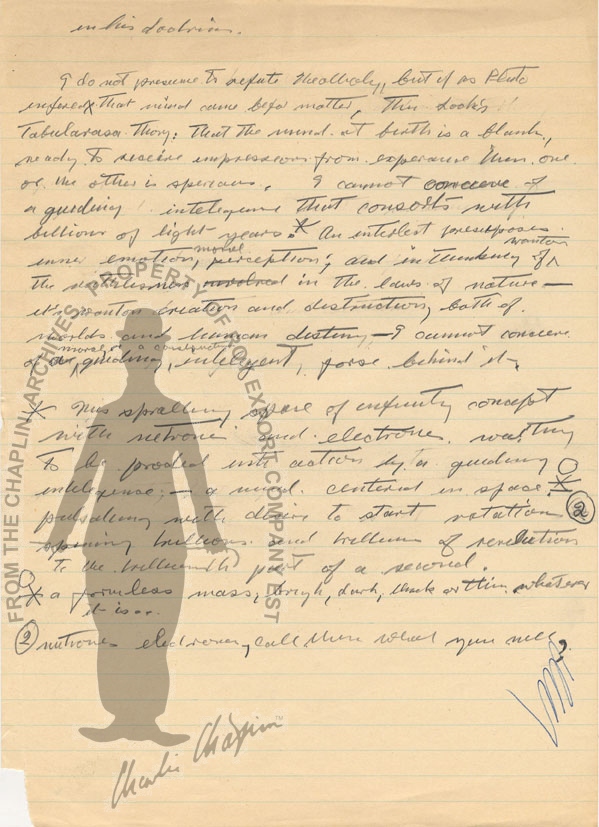 in his doctrine.
I do not presume to refute, but if as Plato
infered that mind came before matter, then Locks
Tabularasa Thory: that the mind at birth is a blank,
ready to receive impressions from experiance then one
or the other is specious. I cannot conceive of
a guiding intelegence that consorts with
billions of light years.* An intelect presuposes
moral wanton
inner emotion, perceptions, and in thinking of
the involved in the laws of nature —
its wanton creation and distruction, both of
worlds and human destiny — I cannot conceve
amoral or a
of a, guiding, intelegent, forse behind it,
* This spralling space of infinity concept
with netrones and electrones waiting
to be proded into action by a guiding
intelegense; — a mind centered in space,
pulsating with desire to start rotation (2)
spinning trillions and trillions of revolution
to the part of a second.
* a formless mass, dark, thick or thin whatever
it is or
(2) nutrones electrones, call them what you will
FROM THE CHAPLIN ARCHIVES. PROPERTY OF ROY EXPORT COMPANY EST
Charlie Chaplin™